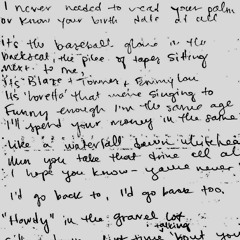 I never needed to read your palm
or know your birth date at all
it's the baseball glove in the
backseat, the pile of tapes sitting
next to me,
it's Blaze + Townes + Emmylou
its 'loretta' that we're singing to
Funny enough I'm the same age
I'll spend your money in the same
like a waterfall down
when you take that drive all al
I hope you know - you're never
I'd go back to, I'd go back too.
"Howdy" in the gravel lot
talking
time 'bout your